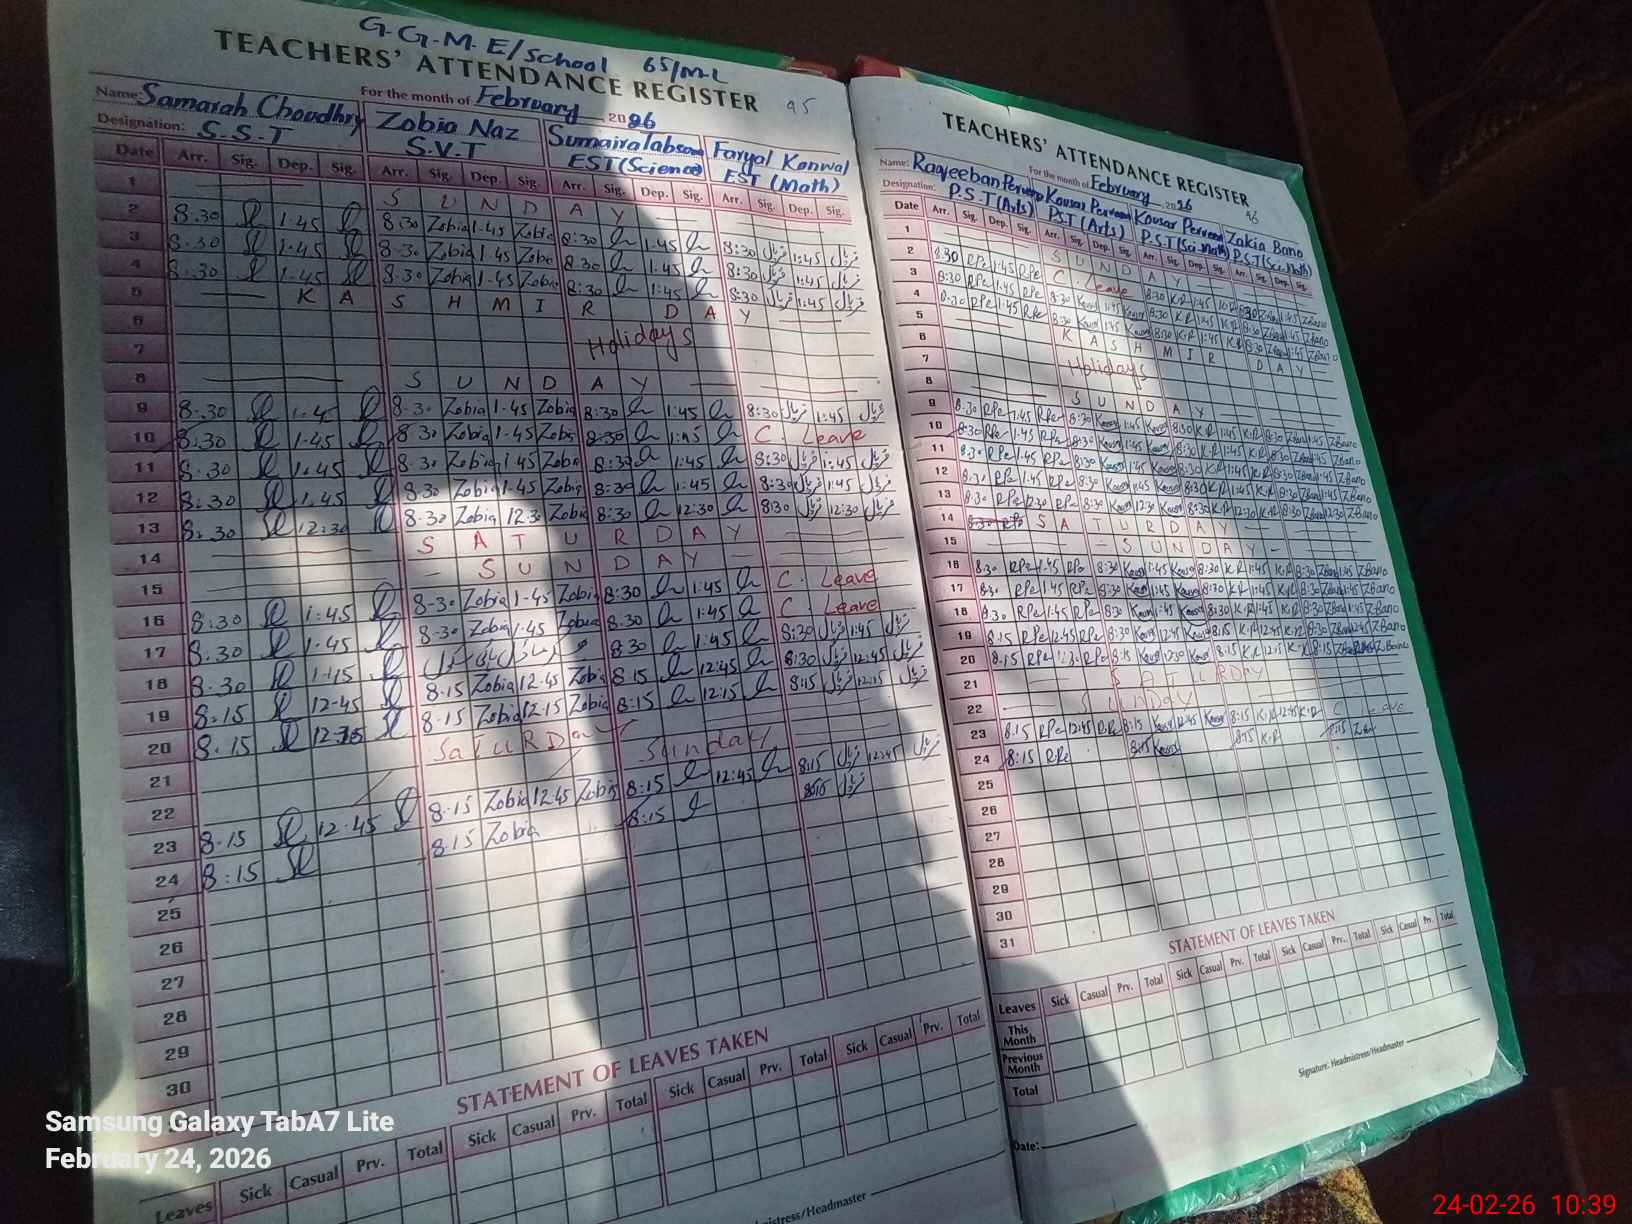 G.G.M.E/School 65/M-L
TEACHERS' ATTENDANCE REGISTER 95
For the month of February 2026
Name: Samarah Choudhry Zobia Naz Sumaira Tabsom Faryal Kanwal
Designation: S.S.T S.V.T EST (Science) EST (Math)
Date Arr. Sig. Dep. Sig. Arr. Sig. Dep. Sig. Arr. Sig. Dep. Sig. Arr. Sig. Dep. Sig.
1 S U N D A Y
2 8.30 1-45 8.30 Zobia 1-45 Zobia 8:30 1.45 8:30 فریال 1:45 فریال
3 8.30 1.45 8.30 Zobia 1.45 Zobe 8.30 1:45 8:30 فریال 1:45 فریال
4 8.30 1.45 8.30 Zobia 1.45 Zobia 8:30 1:45 8:30 فریال 1:45 فریال
5 K A S H M I R D A Y
6 Holidays
7
8 S U N D A Y
9 8.30 1.45 8.30 Zobia 1-45 Zobia 8:30 1:45 8:30 فریال 1:45 فریال
10 8.30 1.45 8.30 Zobia 1-45 Zobia 8:30 1:45 C. Leave
11 8.30 1.45 8.30 Zobia 1.45 Zobia 8:30 1:45 8:30 فریال 1:45 فریال
12 8.30 1.45 8.30 Zobia 1-45 Zobia 8:30 1:45 8:30 فریال 1:45 فریال
13 8.30 12:30 8.30 Zobia 12.30 Zobia 8:30 12:30 8:30 فریال 12:30 فریال
14 S A T U R D A Y
15 S U N D A Y
16 8.30 1.45 8-30 Zobia 1-45 Zobia 8:30 1:45 C. Leave
17 8.30 1.45 8-30 Zobia 1.45 Zobia 8:30 1:45 C. Leave
18 8.30 8:30 1:45 8:30 فریال 1:45 فریال
19 8.15 12-45 8.15 Zobia 12.45 Zobia 8:15 12:45 8:30 فریال 12:45 فریال
20 8.15 8.15 Zobia 12.15 Zobia 8:15 12:15 8:15 فریال 12:15 فریال
21 SATURDay Sunday
22
23 8.15 12.45 8.15 Zobia 12.45 Zobia 8:15 12:45 8:15 فریال 12:45 فریال
24 8:15 8.15 Zobia 8:15 8:15 فریال
25
26
27
28
29
30
STATEMENT OF LEAVES TAKEN
Leaves Sick Casual Prv. Total Sick Casual Prv. Total Sick Casual Prv. Total Sick Casual Prv. Total
mistress/Headmaster
TEACHERS' ATTENDANCE REGISTER
For the month of February 2026
Name: Raqeeban Perveen Kousar Perveen Kousar Perveen Zakia Bano
Designation: P.S.T (Arts) PST (Arts) P.S.T (Sci-Math) P.S.T (Sci-Math)
Date Arr. Sig. Dep. Sig. Arr. Sig. Dep. Sig. Arr. Sig. Dep. Sig. Arr. Sig. Dep. Sig.
1 S U N D A Y
2 8.30 RPe 1.45 RPe C. Leave 8:30 K.R 1:45 K.R 8:30 ZBano 1:45 ZBano
3 8:30 RPe 1.45 RPe 8:30 Kousar 1:45 Kousar 8:30 K.R 1:45 K.R 8:30 ZBano 1:45 ZBano
4 8.30 RPe 1.45 RPe 8:30 Kousar 1:45 Kousar 8:30 K.R 1:45 K.R 8:30 ZBano 1:45 ZBano
5 K A S H M I R D A Y
6 Holidays
7
8 S U N D A Y
9 8.30 RPe 1.45 RPe 8:30 Kousar 1:45 Kousar 8:30 K.R 1:45 K.R 8:30 ZBano 1:45 ZBano
10 8.30 RPe 1.45 RPe 8:30 Kousar 1:45 Kousar 8:30 K.R 1:45 K.R 8:30 ZBano 1:45 ZBano
11 8.30 RPe 1.45 RPe 8:30 Kousar 1:45 Kousar 8:30 K.R 1:45 K.R 8:30 ZBano 1:45 ZBano
12 8.30 RPe 1.45 RPe 8:30 Kousar 1:45 Kousar 8:30 K.R 1:45 K.R 8:30 ZBano 1:45 ZBano
13 8.30 RPe 12.30 RPe 8:30 Kousar 12:30 Kousar 8:30 K.R 12:30 K.R 8:30 ZBano 12:30 ZBano
14 S A T U R D A Y
15 S U N D A Y
16 8.30 RPe 1.45 RPe 8:30 Kousar 1:45 Kousar 8:30 K.R 1:45 K.R 8:30 ZBano 1:45 ZBano
17 8.30 RPe 1.45 RPe 8:30 Kousar 1:45 Kousar 8:30 K.R 1:45 K.R 8:30 ZBano 1:45 ZBano
18 8.30 RPe 1.45 RPe 8:30 Kousar 1:45 Kousar 8:30 K.R 1:45 K.R 8:30 ZBano 1:45 ZBano
19 8.15 RPe 12.45 RPe 8:30 Kousar 12:45 Kousar 8:15 K.R 12:45 K.R 8:30 ZBano 12:45 ZBano
20 8.15 RPe RPe 8:15 Kousar 12:30 Kousar 8:15 K.R 12:15 K.R 8:15 ZBano
21 S A T U R D A Y
22 SUNDAY
23 8.15 RPe 12:45 RPe 8:15 Kousar 12:45 Kousar 8:15 K.R 12:45 K.R C Leave
24 8:15 RPe 8:15 Kousar 8:15 K.R 8:15
25
26
27
28
29
30
31
STATEMENT OF LEAVES TAKEN
Leaves Sick Casual Prv. Total Sick Casual Prv. Total Sick Casual Prv. Total Sick Casual Prv. Total
This Month
Previous Month
Total
Signature: Headmistress/Headmaster
Date:
Samsung Galaxy TabA7 Lite
February 24, 2026
24-02-26 10:39